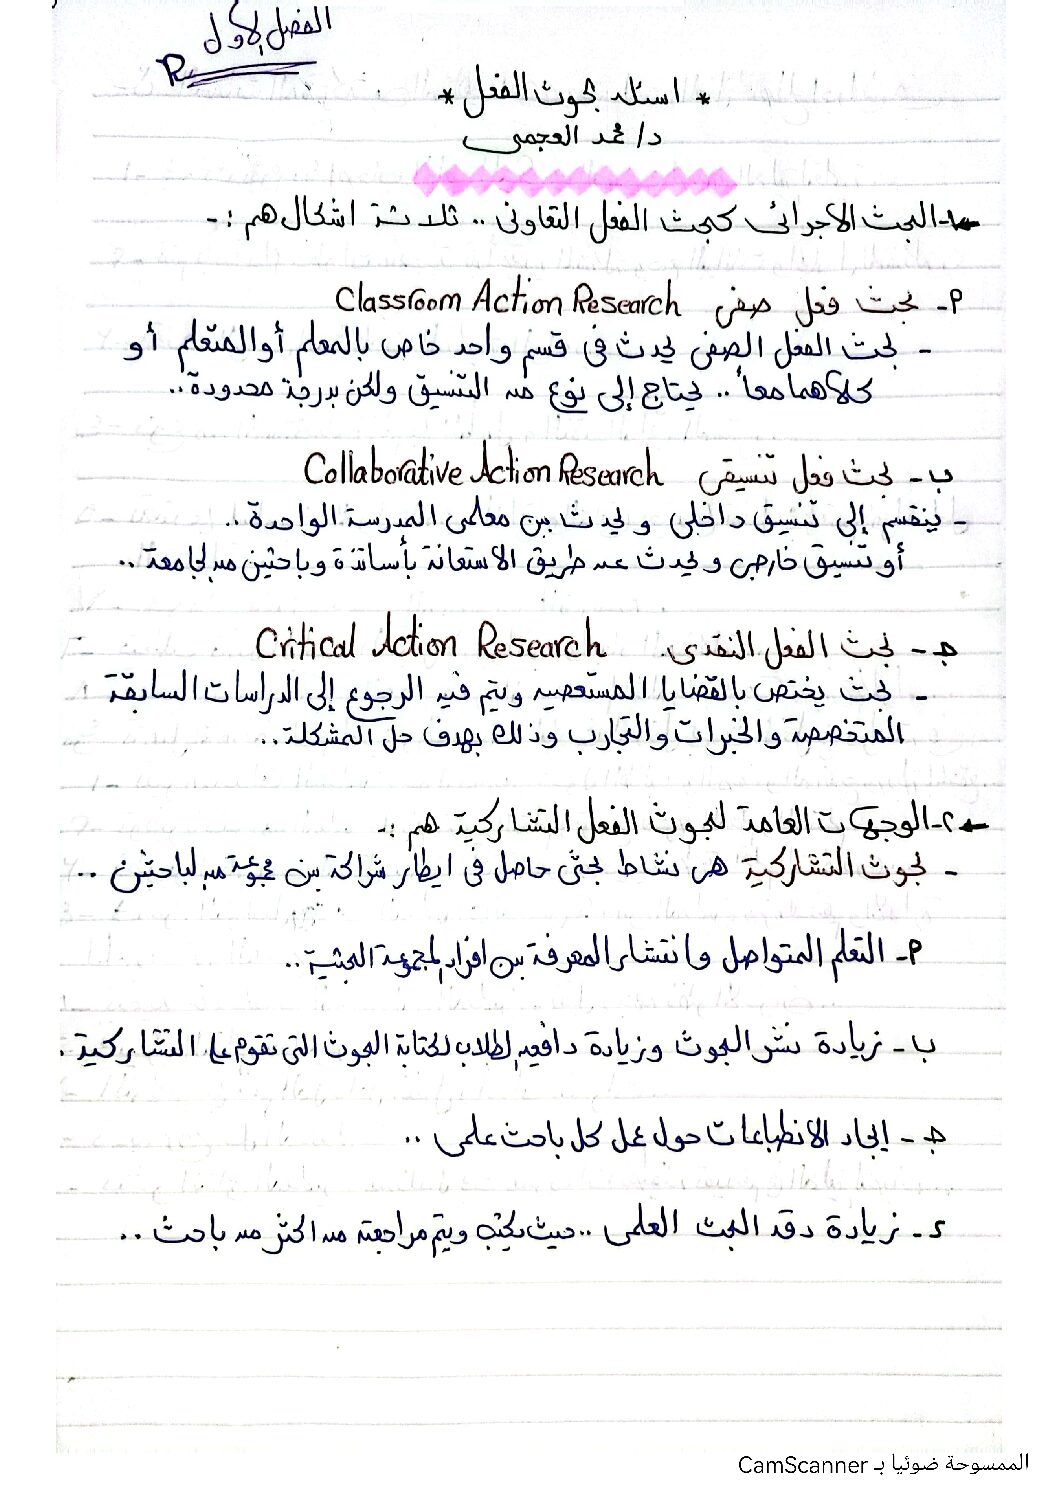 الفصل الاول
* اسئلة بحوث الفعل *
د/ محمد العجمى
١- البحث الاجرائى كبحث الفعل التعاونى .. ثلاثة اشكال هم :-
م- بحث فعل صفى Classroom Action Research
- بحث الفعل الصفى يحدث فى قسم واحد خاص بالمعلم أو المتعلم أو
كلاهما معاً .. يحتاج إلى نوع من التنسيق ولكن بدرجة محدودة ..
ب- بحث فعل تنسيقى Collaborative Action Research
- ينقسم إلى تنسيق داخلى ويحدث بين معلمى المدرسة الواحدة ..
أو تنسيق خارجى ويحدث عن طريق الاستعانة بأساتذة وباحثين من الجامعة ..
جـ- بحث الفعل النقدى. Critical Action Research
- بحث يختص بالقضايا المستعصيه ويتم فيه الرجوع إلى الدراسات السابقة
المتخصصة والخبرات والتجارب وذلك بهدف حل المشكلة ..
٢- الوجهات العامة لبحوث الفعل التشاركية هم :-
- بحوث التشاركية هى نشاط بحثى حاصل فى ايطار شراكة بين مجموعة من الباحثين ..
م- التعلم المتواصل وانتشار المعرفة بين افراد المجموعة البحثية ..
ب- زيادة نشر البحوث وزيادة دافعيه الطلاب لكتابة البحوث التى تقوم على التشاركية .
جـ- إيجاد الانطباعات حول عمل كل باحث علمى ..
د- زيادة دقة البحث العلمى .. حيث يكتب ويتم مراجعته من اكثر من باحث ..
الممسوحة ضوئيا بـ CamScanner